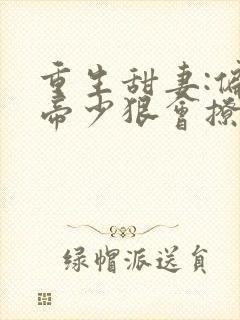 重生甜妻:偏
帝少狠會撩
绿帽派送員